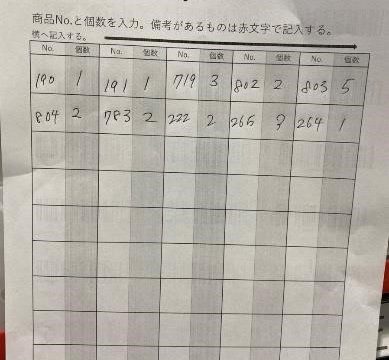 商品No.と個数を入力。備考があるものは赤文字で記入する。
横へ記入する。
No. 個数 No. 個数 No. 個数 No. 個数 No. 個数
190 1 191 1 719 3 802 2 803 5
804 2 783 2 222 2 265 264 1